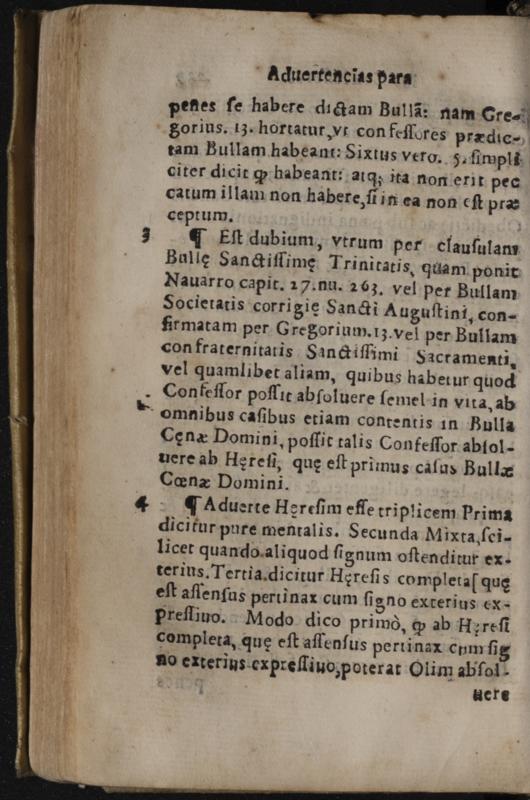 Aduertencias para
penes se habere dictam Bullã: nam Gre-
gorius. 13. hortatur, vt confessores prædic-
tam Bullam habeant: Sixtus vero. 5. simpli
citer dicit ꝙ habeant: atq; ita non erit pec
catum illam non habere, si in ea non est præ
ceptum.
3 ¶ Est dubium, vtrum per clausulam
Bullę Sanctissimę Trinitatis, quam ponit
Nauarro capit. 27. nu. 263. vel per Bullam
Societatis corrigię Sancti Augustini, con-
firmatam per Gregorium. 13. vel per Bullam
confraternitatis Sanctissimi Sacramenti,
vel quamlibet aliam, quibus habetur quod
Confessor possit absoluere semel in vita, ab
omnibus casibus etiam contentis in Bulla
Cęnæ Domini, possit talis Confessor absol-
uere ab Hęresi, quę est primus casus Bullæ
Cœnæ Domini.
4 ¶ Aduerte Hęresim esse triplicem Prima
dicitur pure mentalis. Secunda Mixta, sci-
licet quando aliquod signum ostenditur ex-
terius. Tertia dicitur Hęresis completa [quę
est assensus pertinax cum signo exterius ex-
pressiuo. Modo dico primò, ꝙ ab Hęresi
completa, quę est assensus pertinax cum sig
no exterius expressiuo, poterat Olim absol-
uere